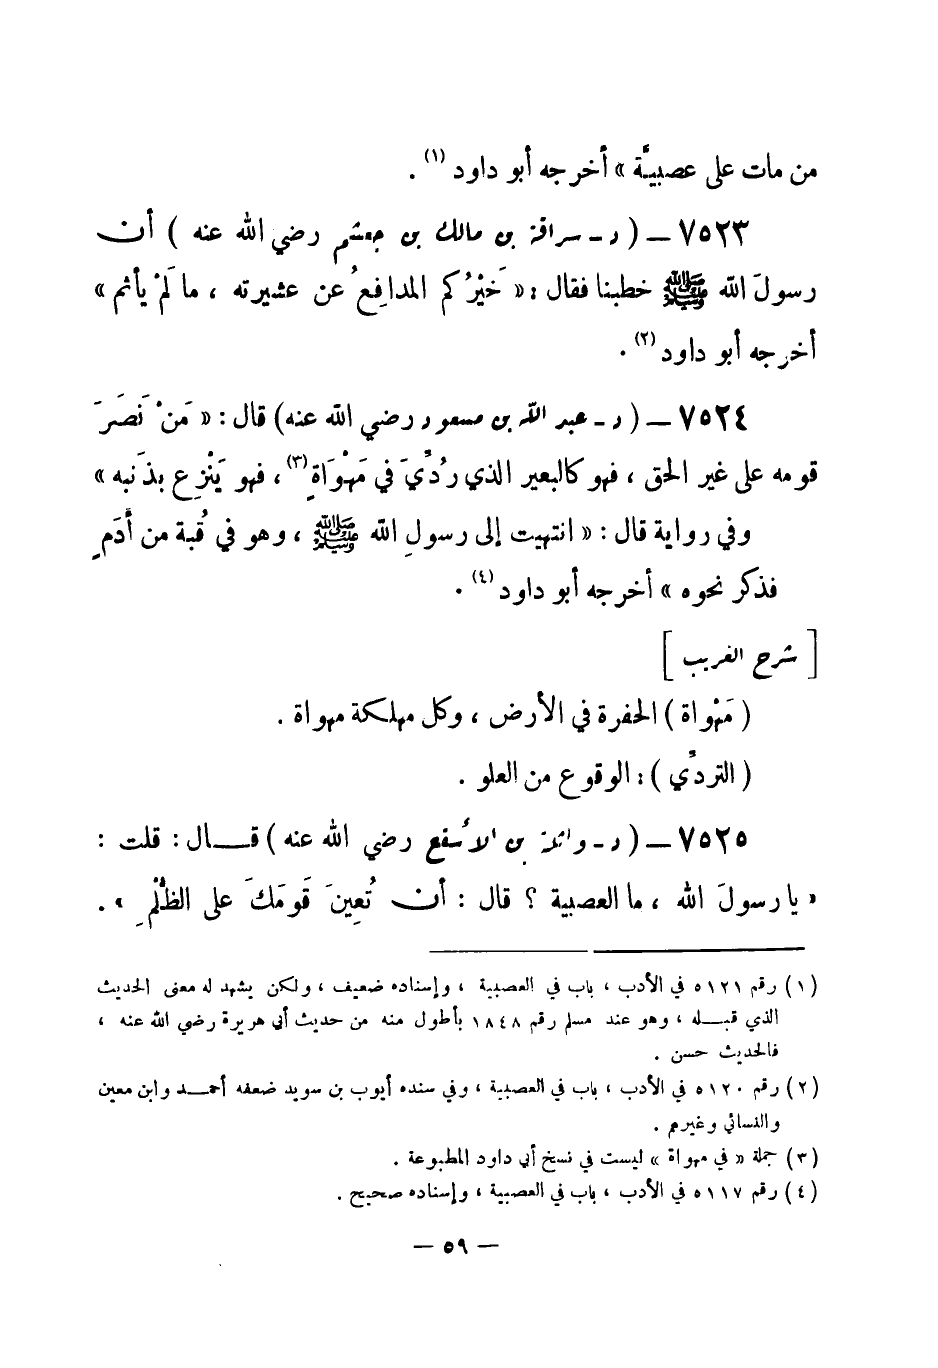 من مات على عصبيَّة » أخرجه أبو داود (١) .
٧٥٢٣ – ( د - سراقة بن مالك بن جعشم رضي الله عنه ) أن
رسولَ الله ﷺ خطبنا فقال : « خَيْرُكم المدافِعُ عن عشيرته ، ما لَمْ يأثم »
أخرجه أبو داود (٢) .
٧٥٢٤ – ( د - عبد الله بن مسعود رضي الله عنه ) قال : « مَنْ نَصَرَ
قومه على غير الحق ، فهو كالبعير الذي رُدِّيَ في مَهْوَاةٍ (٣) ، فهو يَنْزِع بذَنَبه »
وفي رواية قال : « انتهيت إلى رسولِ الله ﷺ ، وهو في قُبة من أَدَمٍ
فذكر نحوه » أخرجه أبو داود (٤) .
[ شرح الغريب ]
( مَهْواة ) الحفرة في الأرض ، وكل مهلكة مهواة .
( التردِّي ) : الوقوع من العلو .
٧٥٢٥ – ( د - واثلة بن الأسقع رضي الله عنه ) قـــال : قلت :
« يا رسولَ الله ، ما العصبية ؟ قال : أن تُعِينَ قَومَكَ على الظُّلْمِ » .
(١) رقم ٥١٢١ في الأدب ، باب في العصبية ، وإسناده ضعيف ، ولكن يشهد له معنى الحديث
الذي قبـــله ، وهو عند مسلم رقم ١٨٤٨ بأطول منه من حديث أبي هريرة رضي الله عنه ،
فالحديث حسن .
(٢) رقم ٥١٢٠ في الأدب ، باب في العصبية ، وفي سنده أيوب بن سويد ضعفه أحمـــد وابن معين
والنسائي وغيرم .
(٣) جملة « في مهواة » ليست في نسخ أبي داود المطبوعة .
(٤) رقم ٥١١٧ في الأدب ، باب في العصبية ، وإسناده صحيح .
– ٥٩ –